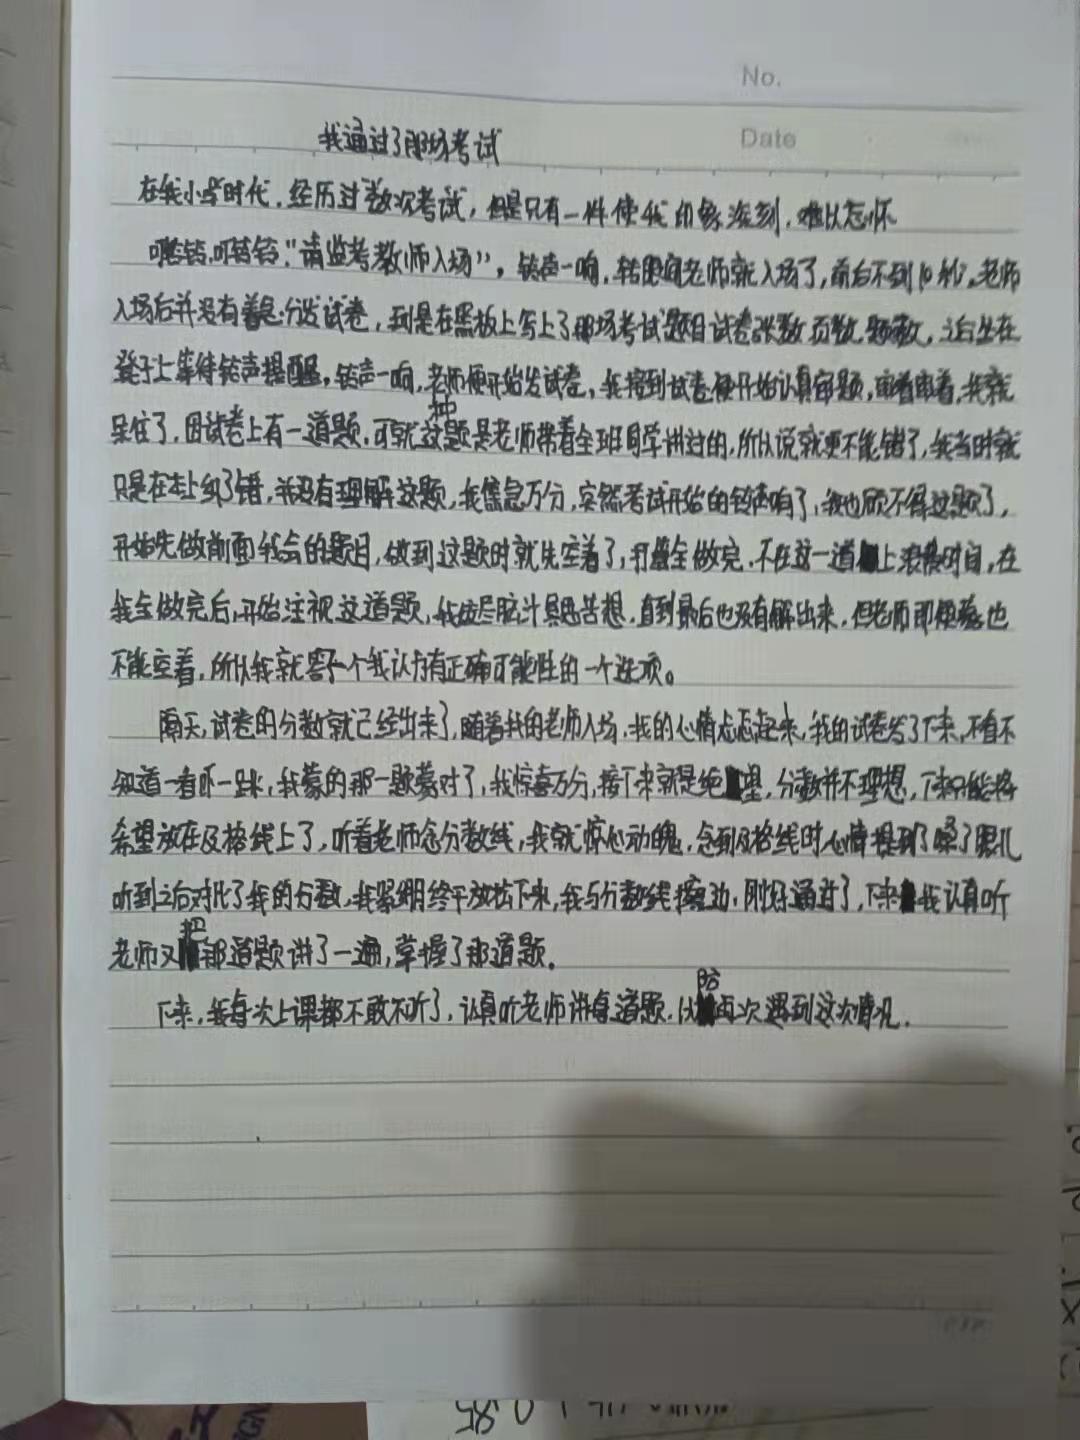 No.
Date
我通过了那场考试
在我小学时代，经历过数次考试，但是只有一件使我印象深刻，难以忘怀
叮铃铃，叮铃铃，“请监考教师入场”，铃声一响，转眼间老师就入场了，前后不到10秒，老师
入场后并没有着急分发试卷，到是在黑板上写上了那场考试题目试卷张数页数题数，之后坐在
凳子上等待铃声提醒，铃声一响，老师便开始发试卷，我接到试卷便开始认真审题，审着审着，我就
呆住了，因试卷上有一道题，可就这种题是老师带着全班同学讲过的，所以说就更不能错了，我当时就
只是在本上纠了错，并没有理解这题，我焦急万分，突然考试开始的铃声响了，我也顾不得这题了，
开始先做前面我会的题目，做到这题时就先空着了，打算全做完，不在这一道上浪费时间，在
我全做完后，开始注视这道题，我绞尽脑汁冥思苦想，直到最后也没有解出来，但老师即便蒙也
不能空着，所以我就写了一个我认为有正确可能性的一个选项。
隔天，试卷的分数就已经出来了，随着我的老师入场，我的心情忐忑起来，我的试卷发了下来，不看不
知道一看吓一跳，我蒙的那一题蒙对了，我惊喜万分，接下来就是绝望，分数并不理想，下来只能将
希望放在及格线上了，听着老师念分数线，我就惊心动魄，念到及格线时心情提到了嗓了眼儿
听到之后对比了我的分数，我紧绷终于放松下来，我与分数线擦边，刚好通过了，下来我认真听
老师又把那道题讲了一遍，掌握了那道题。
下来，我每次上课都不敢不听了，认真听老师讲每道题，以防再次遇到这次情况．